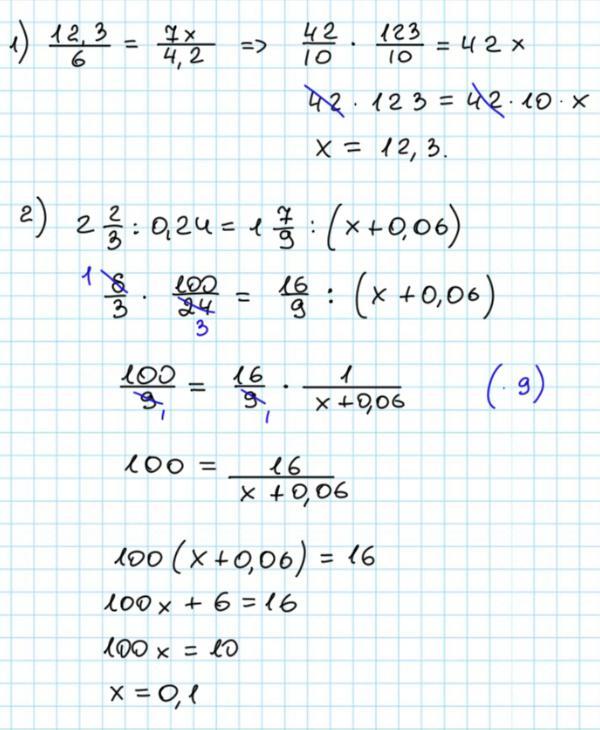 1) 12,3/6 = 7x/4,2 => 42/10 · 123/10 = 42x
42 · 123 = 42 · 10 · x
x = 12,3.
2) 2 2/3 : 0,24 = 1 7/9 : (x+0,06)
1 8/3 · 100/24 3 = 16/9 : (x+0,06)
100/9 1 = 16/9 1 · 1/x+0,06 (· 9)
100 = 16/x+0,06
100(x+0,06) = 16
100x + 6 = 16
100x = 10
x = 0,1